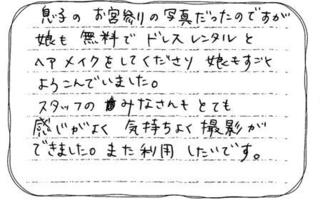 息子の お宮参りの写真だったのですが
娘も 無料で ドレスレンタルと
ヘアメイクをしてくださり 娘もすごく
よろこんでいました。
スタッフの みなさんも とても
感じがよく 気持ちよく 撮影が
できました。また 利用 したいです。